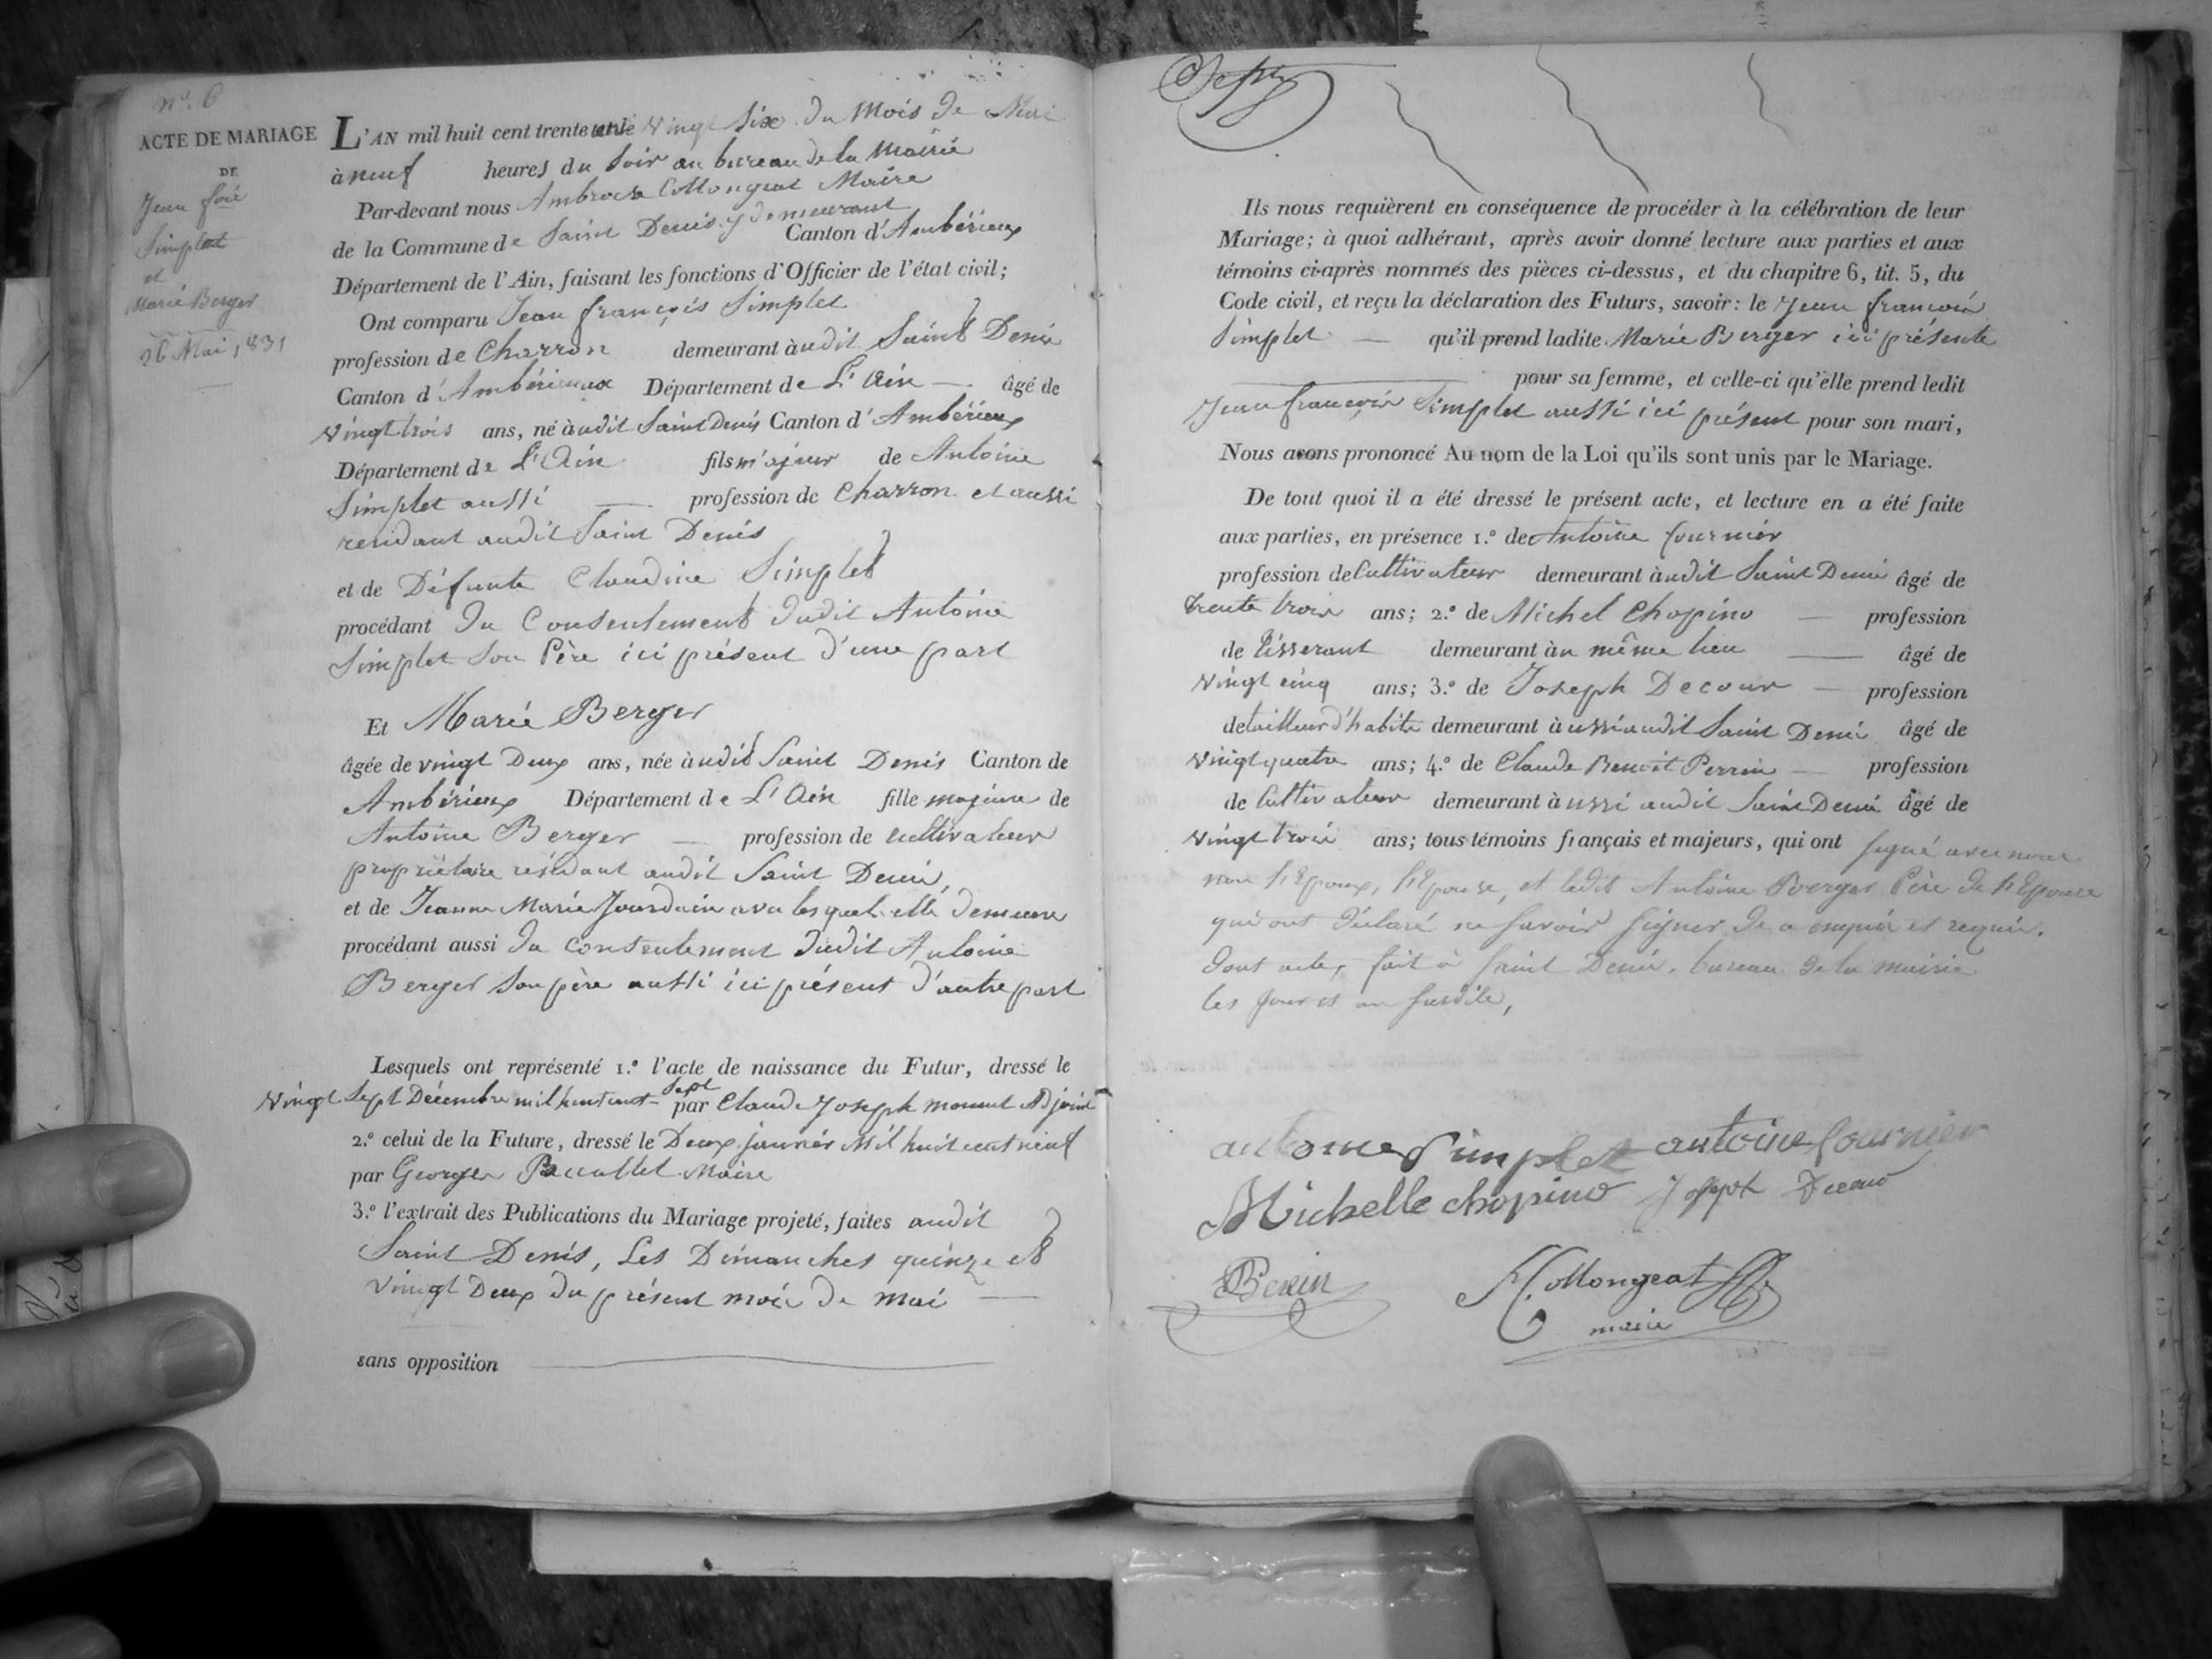 n.° 6
ACTE DE MARIAGE
DE
Jean fois
Simplet
et
Marie Berger
26 Mai 1831
L'AN mil huit cent trente un le vingt six du Mois de Mai
à neuf heures du soir au bureau de la Mairie
Par-devant nous Ambroise Collongeat Maire
de la Commune de Saint Denis y demeurant Canton d'Ambérieux
Département de l'Ain, faisant les fonctions d'Officier de l'état civil;
Ont comparu Jean françois Simplet
profession de Charron demeurant àudit Saint Denis
Canton d'Ambérieux Département de L'Ain — âgé de
vingt trois ans, né àudit Saint Denis Canton d'Ambérieux
Département de L'Ain fils majeur de Antoine
Simplet aussi — profession de Charron et aussi
rendant audit Saint Denis
et de Défunte Claudine Simplet
procédant du Consentement dudit Antoine
Simplet son Père ici présent d'une part
Et Marie Berger
âgée de vingt Deux ans, née àudit Saint Denis Canton de
Ambérieux Département de L'Ain fille majeure de
Antoine Berger — profession de cultivateur
propriétaire résidant audit Saint Denis,
et de Jeanne Marie Jourdain avec lesquels elle demeure
procédant aussi du consentement dudit Antoine
Berger son père aussi ici présent d'autre part
Lesquels ont représenté 1.° l'acte de naissance du Futur, dressé le
vingt Sept Décembre mil huit cent sept par Claude Joseph Adjoint
2.° celui de la Future, dressé le Deux janvier Mil huit cent neuf
par Georges Maire
3.° l'extrait des Publications du Mariage projeté, faites audit
Saint Denis, Les Dimanches quinze et
vingt Deux du présent mois de mai —
sans opposition
Ils nous requièrent en conséquence de procéder à la célébration de leur
Mariage; à quoi adhérant, après avoir donné lecture aux parties et aux
témoins ci-après nommés des pièces ci-dessus, et du chapitre 6, tit. 5, du
Code civil, et reçu la déclaration des Futurs, savoir: le Jean francois
Simplet — qu'il prend ladite Marie Berger ici présente
pour sa femme, et celle-ci qu'elle prend ledit
Jean françois Simplet aussi ici présent pour son mari,
Nous avons prononcé Au nom de la Loi qu'ils sont unis par le Mariage.
De tout quoi il a été dressé le présent acte, et lecture en a été faite
aux parties, en présence 1.° de Antoine fournier
profession de Cultivateur demeurant àudit Saint Denis âgé de
trente trois ans; 2.° de Michel Chopino — profession
de tisserant demeurant àu même lieu — âgé de
vingt cinq ans; 3.° de Joseph Decour — profession
de tailleur d'habits demeurant àussi audit Saint Denis âgé de
vingt quatre ans; 4.° de Claude Benoit Perrin — profession
de Cultivateur demeurant àussi audit Saint Denis âgé de
vingt trois ans; tous témoins français et majeurs, qui ont signé avec nous
non l'Epoux, l'Epouse, et ledit Antoine Berger Père de l'Epouse
qui ont déclaré ne savoir signer de a enquis et requis.
Dont acte, fait à saint Denis, bureau de la mairie
les jour et an susdits,
antoine Simplet antoine fournier
Michelle chopino Joseph
Perrin Collongeat
maire